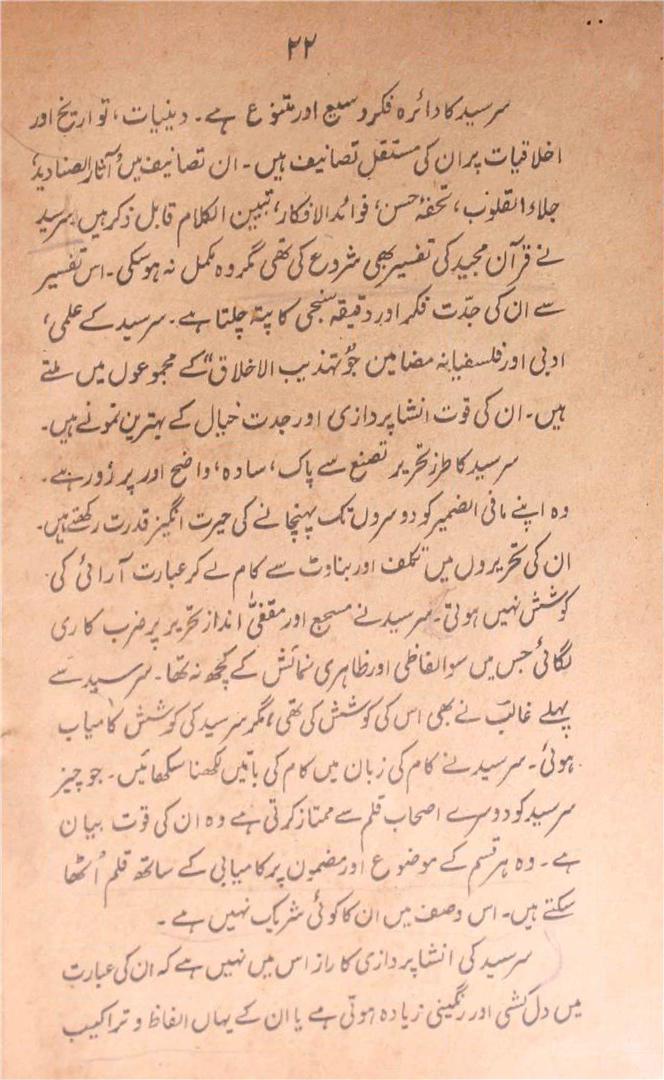 ۲۲
سرسید کا دائرہ فکر وسیع اور متنوع ہے۔ دینیات، تواریخ اور
اخلاقیات پر ان کی مستقل تصانیف ہیں۔ ان تصانیف میں آثار الصنادید،
جلاء القلوب، تحفۂ حسن، فوائد الافکار، تبیین الکلام قابل ذکر ہیں۔ سرسید
نے قرآن مجید کی تفسیر بھی شروع کی تھی مگر وہ مکمل نہ ہو سکی۔ اس تفسیر
سے ان کی جدّت فکر اور دقیقہ سنجی کا پتہ چلتا ہے۔ سرسید کے علمی،
ادبی اور فلسفیانہ مضامین جو "تہذیب الاخلاق" کے مجموعوں میں ملتے
ہیں۔ ان کی قوت انشا پردازی اور جدت خیال کے بہترین نمونے ہیں۔
سرسید کا طرز تحریر تصنع سے پاک، سادہ، واضح اور پر زور ہے۔
وہ اپنے مافی الضمیر کو دوسروں تک پہنچانے کی حیرت انگیز قدرت رکھتے ہیں۔
ان کی تحریروں میں تکلف اور بناوٹ سے کام لے کر عبارت آرائی کی
کوشش نہیں ہوتی۔ سرسید نے مسجع اور مقفیٰ انداز تحریر پر ضرب کاری
لگائی جس میں سوا لفاظی اور ظاہری نمائش کے کچھ نہ تھا۔ سرسید سے
پہلے غالب نے بھی اس کی کوشش کی تھی، مگر سرسید کی کوشش کامیاب
ہوئی۔ سرسید نے کام کی زبان میں کام کی باتیں لکھنا سکھائیں۔ جو چیز
سرسید کو دوسرے اصحاب قلم سے ممتاز کرتی ہے وہ ان کی قوت بیان
ہے۔ وہ ہر قسم کے موضوع اور مضمون پر کامیابی کے ساتھ قلم اُٹھا
سکتے ہیں۔ اس وصف میں ان کا کوئی شریک نہیں ہے۔
سرسید کی انشا پردازی کا راز اس میں نہیں ہے کہ ان کی عبارت
میں دل کشی اور رنگینی زیادہ ہوتی ہے یا ان کے یہاں الفاظ و تراکیب